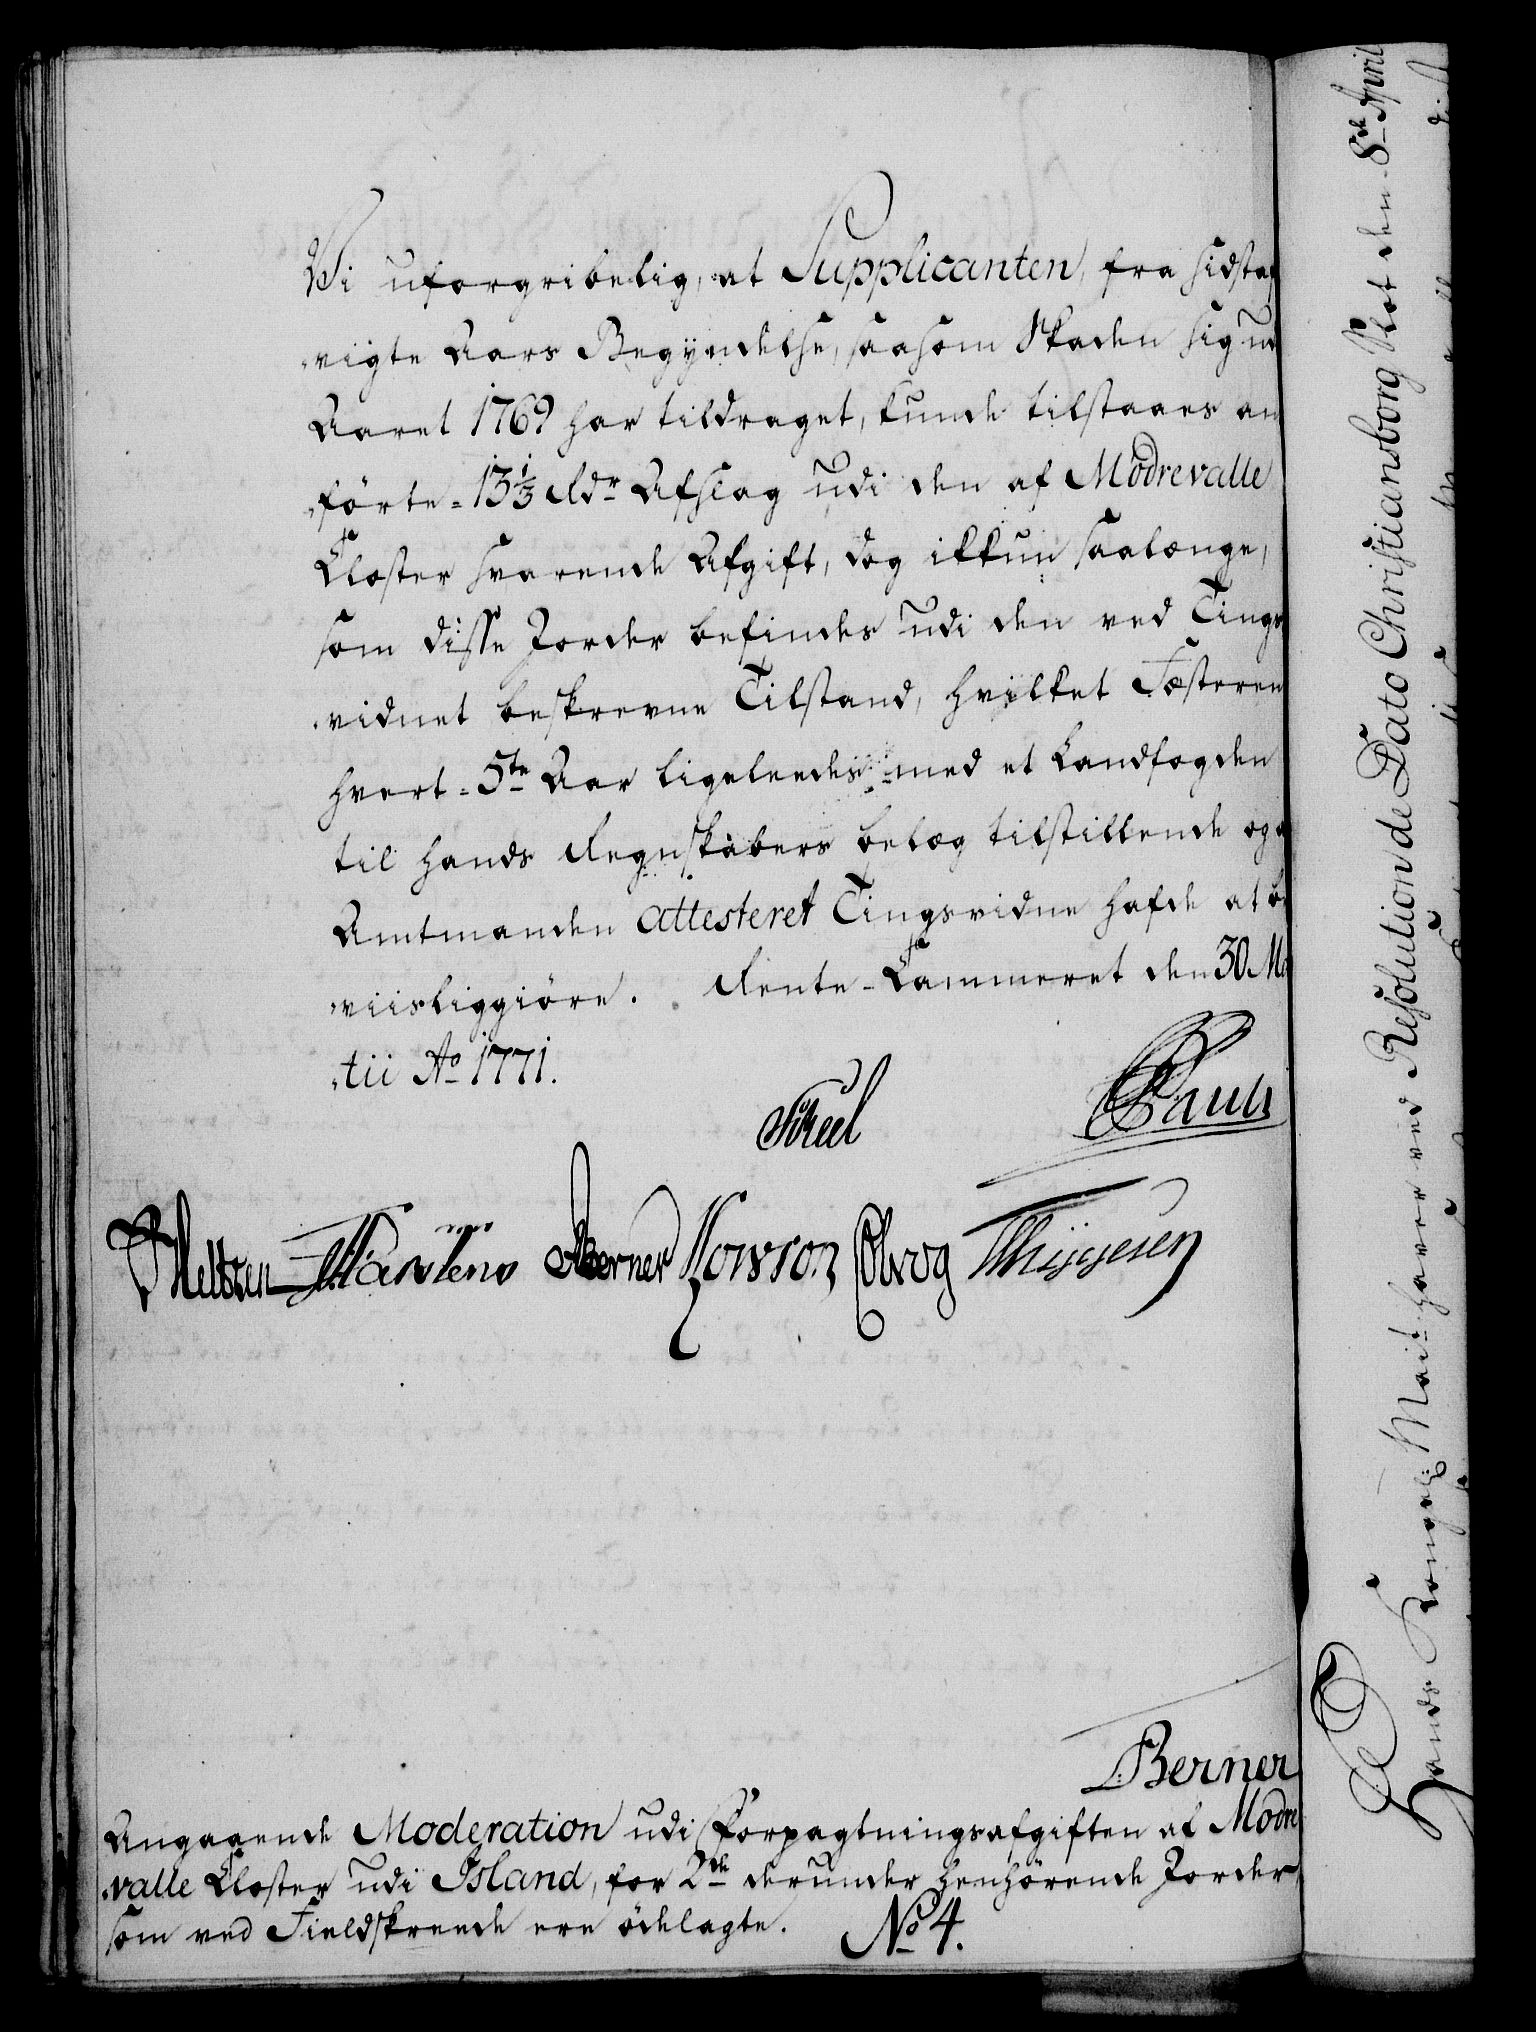 Vi uforgribelig, at Supplicanten, fra sidstaf
vigte Aars Begyndelse, saasom Skaden sig ud
Aaret 1769 har tildraget, kunde tilstaaes an
förte = 13⅓ Rdr Afslag udi den af Modrevalle
Closter svarende Afgift, dog ikkun saalænge,
som disse Jorder befindes udi den ved Tings
vidnet beskrevne Tilstand, hvilket Fæsteren
hvert = 5te Aar ligeleedes med et Landfogden
til hands Regnskabers belæg tilstillende og a
Amtmanden attesteret Tingsvidne hafde at be
viisliggiöre. Rente-Cammeret den 30 Ma
tii Ao 1771.
Scheel
Pauli
Berner Kowson Thygesen
Berner
Angaaende Moderation udi Forpagtningsafgiften af Modre
valle Closter udi Island, for 2de derunder henhörende Jorder,
som ved Fieldskreede ere ödelagte. No 4.
Hands Kongel: Mait haver ved Resolution de Dato Christiansborg Slot den 8de April